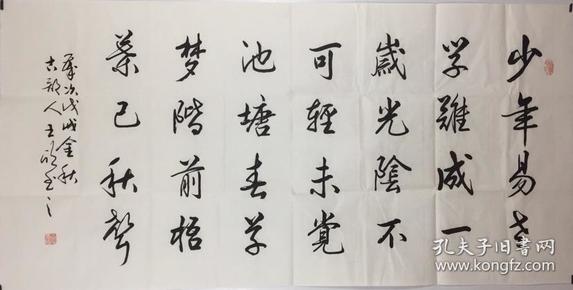 少年易老
学難成一
歲光陰不
可輕未覺
池塘春草
梦階前梧
葉已秋聲
歲次戊戌金秋
古部人王欣書之
孔夫子旧书网
www.kongfz.com